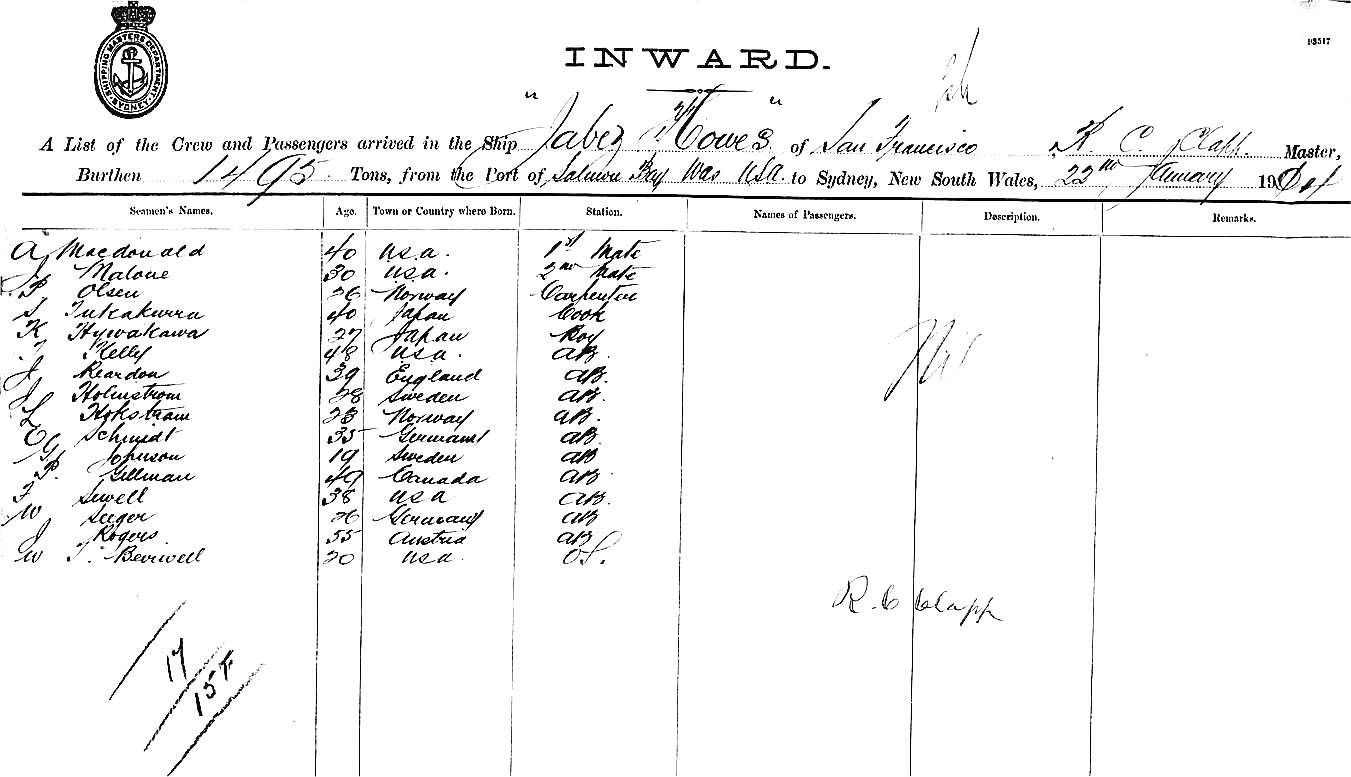 SHIPPING MASTERS DEPARTMENT SYDNEY
93517
INWARD.
A List of the Crew and Passengers arrived in the Ship "Jabez Howes" of San Francisco R. C. Clapp. Master,
Burthen 1495 Tons, from the Port of Salmon Bay Was USA. to Sydney, New South Wales, 22nd January 190
Seamen's Names. Age. Town or Country where Born. Station. Names of Passengers. Description. Remarks.
A Macdonald 40 U.S.a. 1st Mate
J Malone 30 U.S.a. 2nd Mate
P. Olsen 26 Norway Carpenter
S 40 Japan Cook
K Hywakawa 27 Japan Boy
T Kelly 48 U.S.a. AB.
J Reardon 39 England AB.
J Holmstrom 28 Sweden AB.
L Hokstram 23 Norway AB.
E Schmidt 35 Germany AB.
G Johnson 19 Sweden AB
P. Gillman 49 Canada AB
F Sewell 38 U S a AB.
W Seeger 26 Germany AB
J Rogers 55 Austria AB
W T. 20 U.S.a. OS.
Nil
R. C Clapp
17